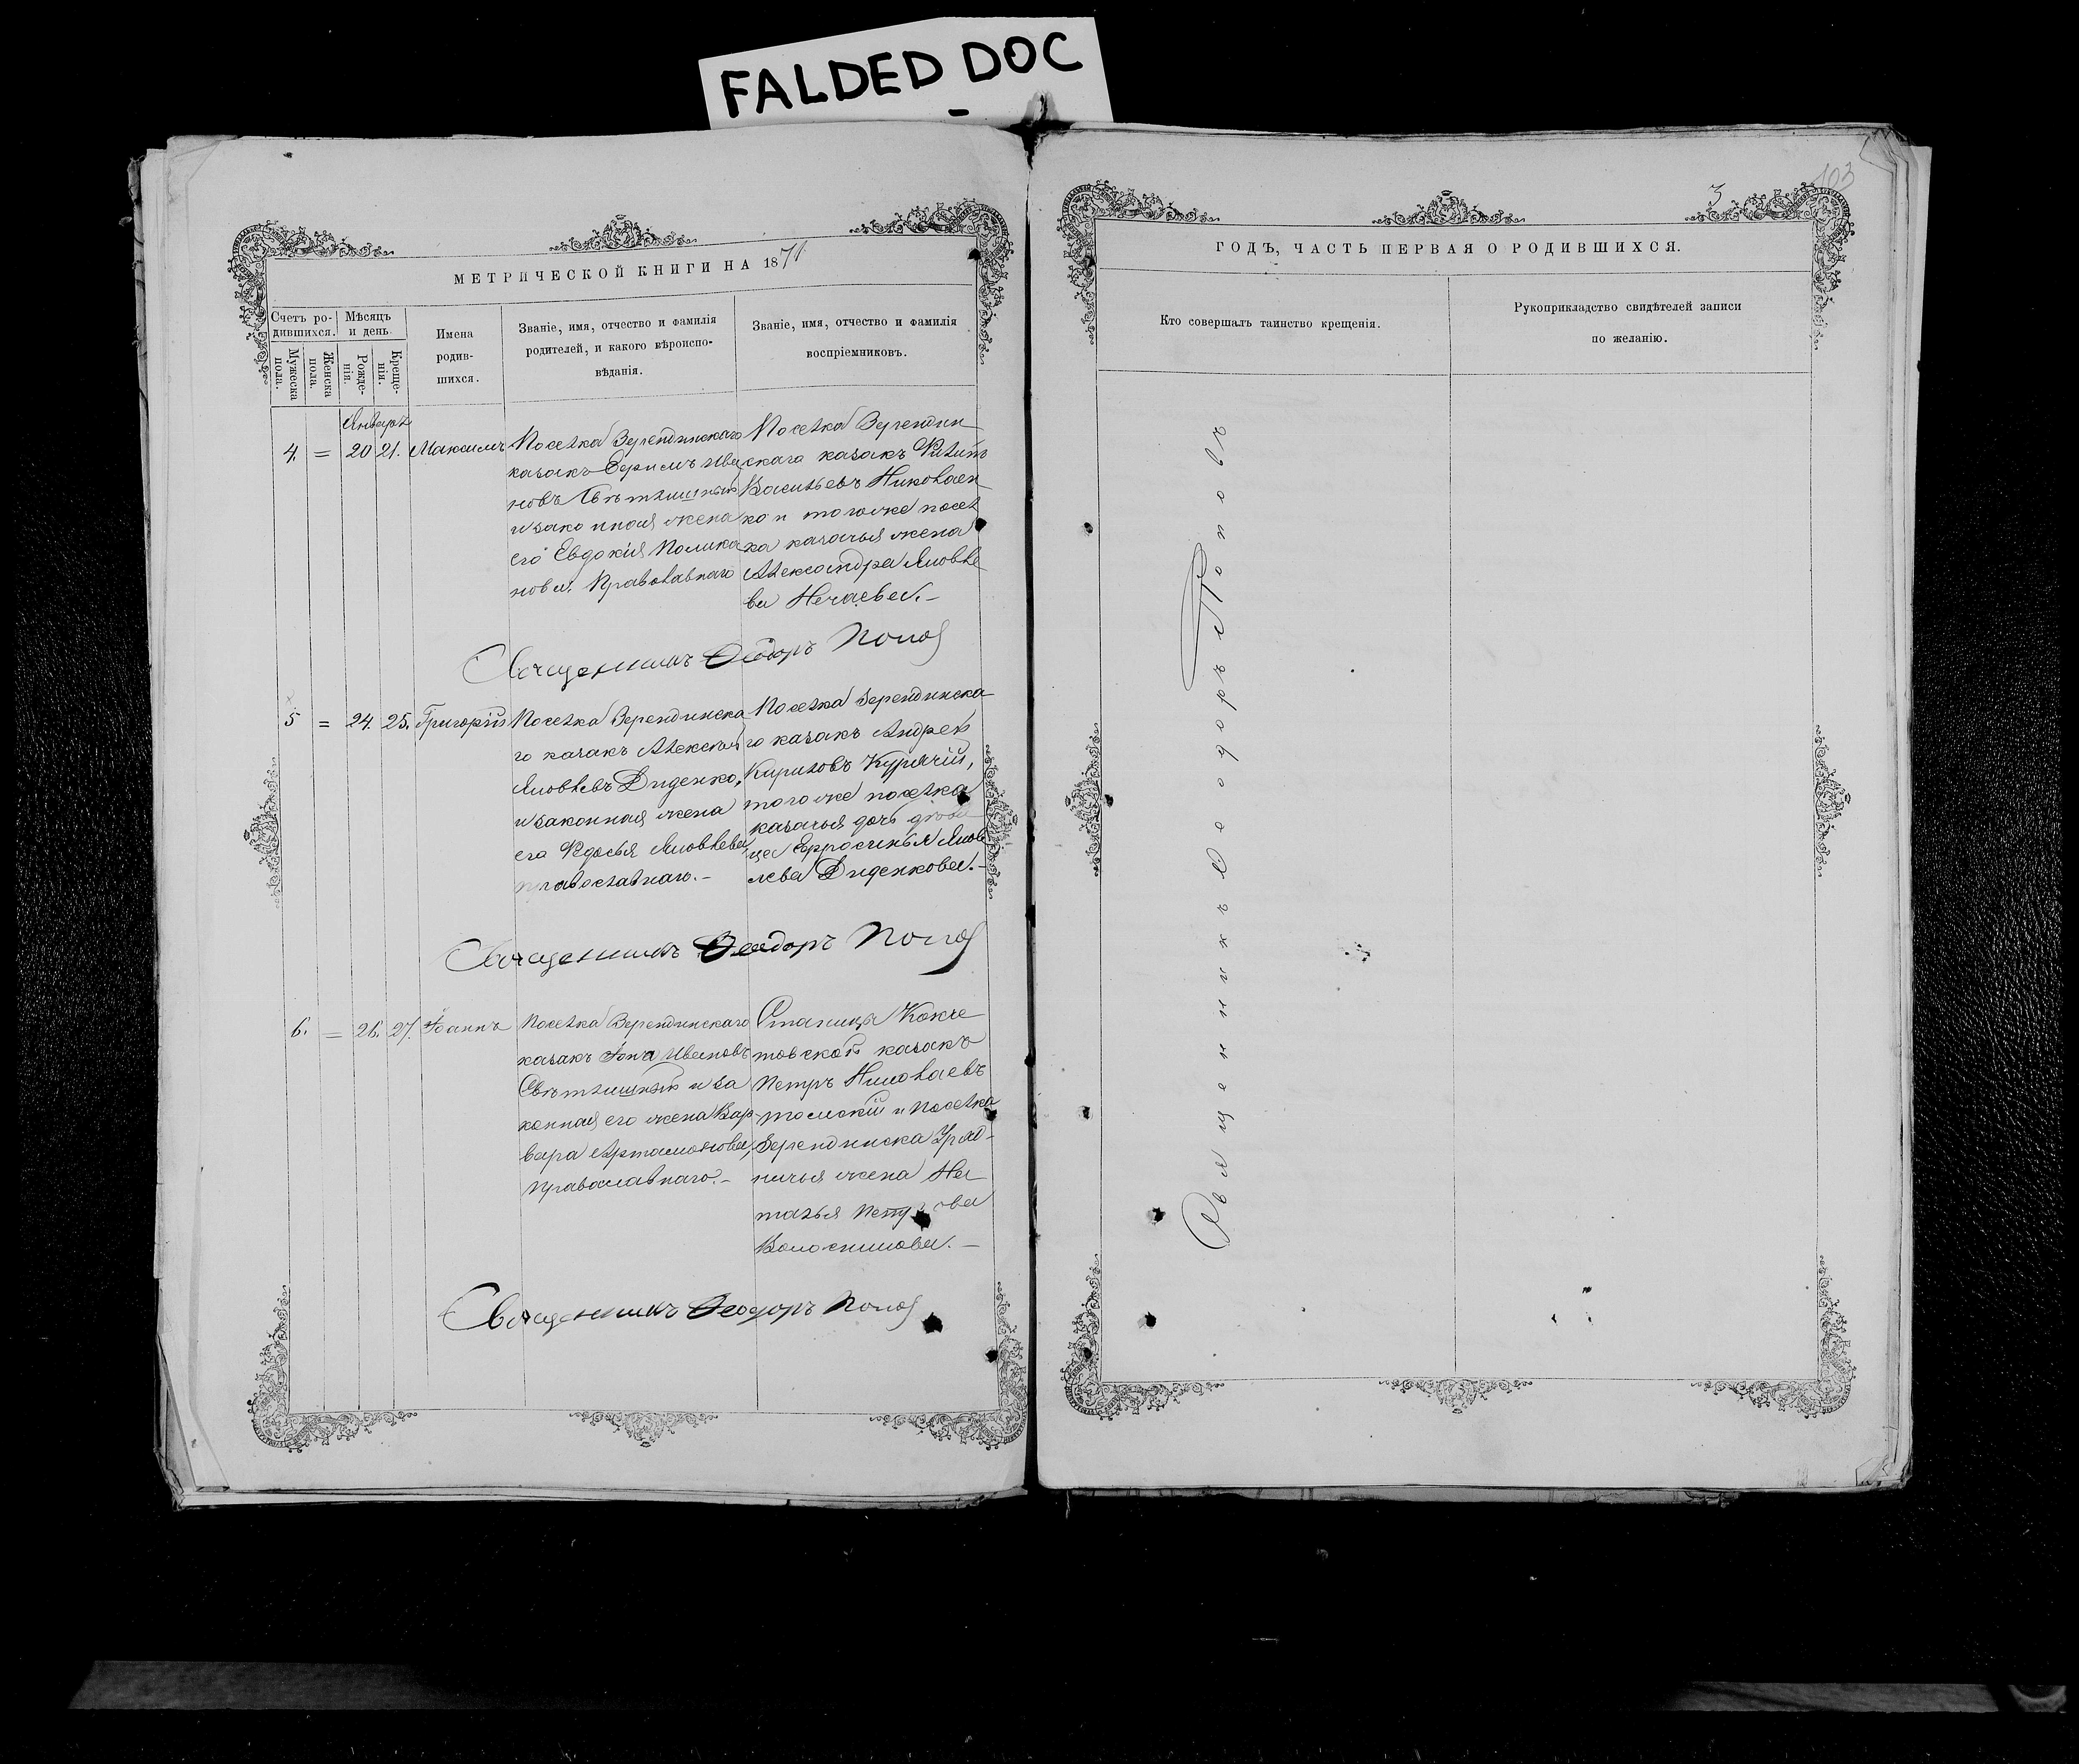 FALDED DOC
МЕТРИЧЕСКОЙ КНИГИ НА 1871
Счетъ ро-
дившихся.
Мѣсяцъ
и день.
Мужеска
пола.
Женска
пола.
Рожде-
нія.
Креще-
нія.
Имена
родив-
шихся.
Званіе, имя, отчество и фамилія
родителей, и какого вѣроиспо-
вѣданія.
Званіе, имя, отчество и фамилія
воспріемниковъ.
Январь
4. = 20 21. Максимъ
Поселка Зерендинскаго
казакъ Ефимъ Ива
новъ Свѣтлишный
и законная жена
его Евдокія Полика
нова. Православнаго
Поселка Зерендин
скаго казакъ
Васильевъ Николаен
ко и тогоже посел
ка казачья жена
Александра Яковле
ва Нечаева.–
Священникъ Ѳеодоръ Попов
5 = 24. 25. Григорій
Поселка Зерендинска
го казакъ Алексѣй
Яковлевъ Диденко,
и законная жена
его Ѳедосья Яковлева
православнаго.–
Поселка Зерендинска
го казакъ Андрей
Кириловъ Курячій,
тогоже поселка
казачья дочь дѣви
ца Ефросинья Яков
лева Диденкова.–
Священникъ Ѳеодоръ Попов
6. = 26. 27. Іоаннъ
Поселка Зерендинскаго
казакъ Іона Ивановъ
Свѣтлишный и за
конная его жена Вар
вара Артамонова,
православнаго.–
Станицы Кокче
товской казакъ
Петръ Николаевъ
и Поселка
Зерендинска Уряд-
ничья жена На
талья Петрова
Волошинова.–
Священникъ Ѳеодоръ Попов
3
103
ГОДЪ, ЧАСТЬ ПЕРВАЯ О РОДИВШИХСЯ.
Кто совершалъ таинство крещенія.
Рукоприкладство свидѣтелей записи
по желанію.
Священникъ Ѳеодоръ Поповъ